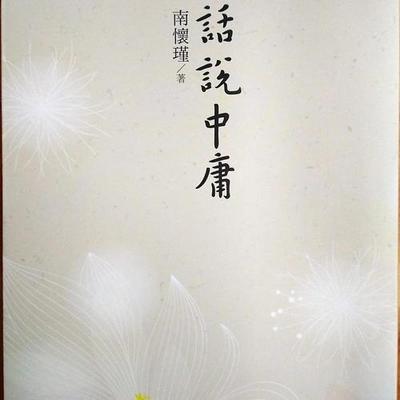 話說中庸
南懷瑾／著